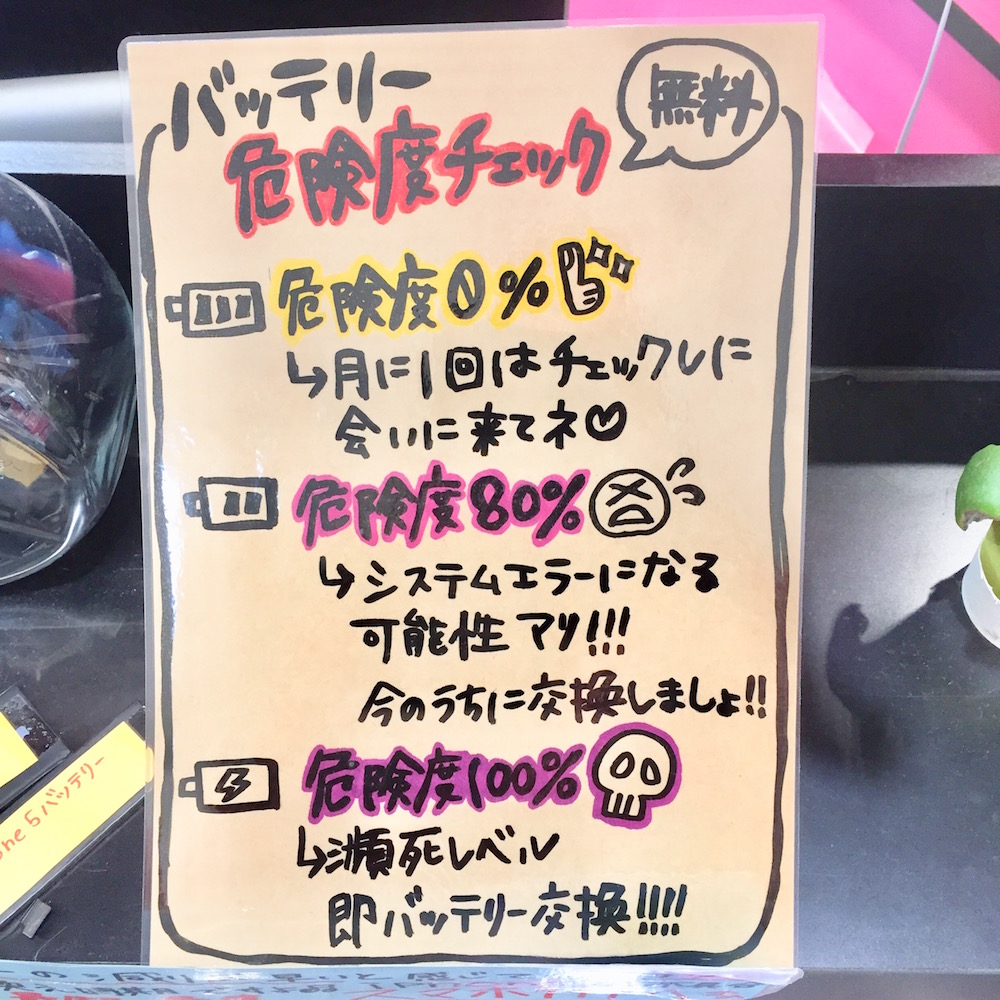 バッテリー
無料
危険度チェック
危険度0%
↳月に1回はチェックしに
会いに来てネ♡
危険度80%
↳システムエラーになる
可能性アリ!!!
今のうちに交換しましょ!!
危険度100%
↳瀕死レベル
即バッテリー交換!!!!
ne 5バッテリー